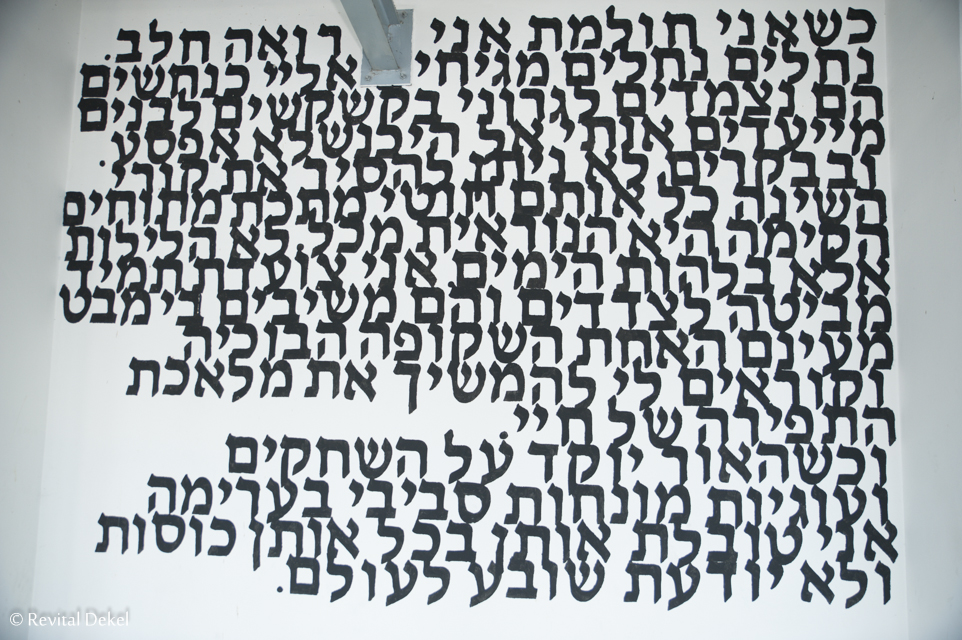 כשאני חולמת אני רואה חלב.
נחלים נחלים מגיחי אליי כנחשים
הם נצמדים לגרוני בקשקשים לבנים
מייעדים אותי אל היבושלא אפסע.
ובבקרים לא ניתן להסיר את קורי
השינה כל אותם חוטי מתכת מתוחים
הסימה היא הנוראית מכל. לא הלילות
אלא בלהות הימים אני צועדת תמיד
מביטה לצדדים והם משיבים בי מבט
מעינם האחת השקופה הבוכיה
וקוראים לי להמשיך את מלאכת
התפירה של חיי
וכשהאור יוקד על השחקים
ועוגיות מונחות סביבי בערימה
אני טובלת אותן בכל אותן כוסות
ולא יודעת שובע לעולם.
© Revital Dekel